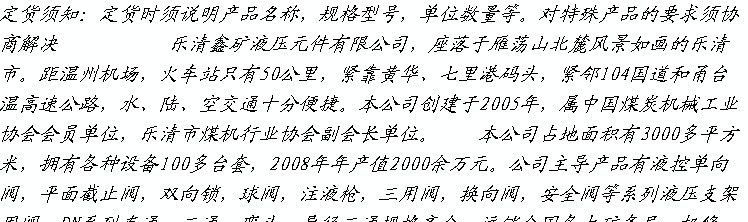 定货须知：定货时须说明产品名称，规格型号，单位数量等。对特殊产品的要求须协
商解决 乐清鑫矿液压元件有限公司，座落于雁荡山北麓风景如画的乐清
市。距温州机场，火车站只有50公里，紧靠黄华、七里港码头，紧邻104国道和甬台
温高速公路，水、陆、空交通十分便捷。本公司创建于2005年，属中国煤炭机械工业
协会会员单位，乐清市煤机行业协会副会长单位。 本公司占地面积有3000多平方
米，拥有各种设备100多台套，2008年年产值2000余万元。公司主导产品有液控单向
阀，平面截止阀，双向锁，球阀，注液枪，三用阀，换向阀，安全阀等系列液压支架